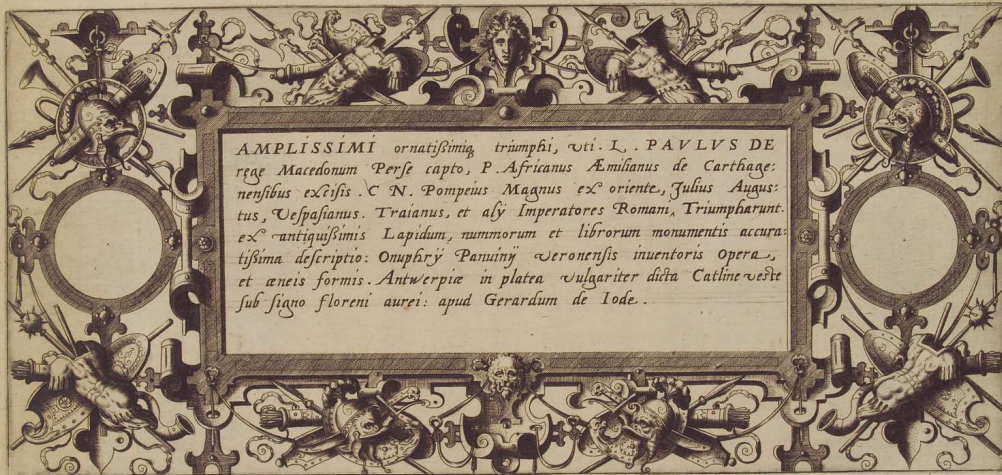 AMPLISSIMI ornatißimiq₃ triumphi, vti . L . PAVLVS DE
rege Macedonum Perse capto, P. Africanus Æmilianus de Carthage:
nensibus excisis . C N . Pompeius Magnus ex oriente, Julius Augus:
tus, Vespasianus . Traianus, et alÿ Imperatores Romani, Triumpharunt.
ex antiquißimis Lapidum, nummorum et librorum monumentis accura:
tißima descriptio: Onuphrÿ Panuinÿ veronensis inuentoris Opera,
et æneis formis . Antwerpiæ in platea vulgariter dicta Catline veste
sub signo floreni aurei: apud Gerardum de Iode .